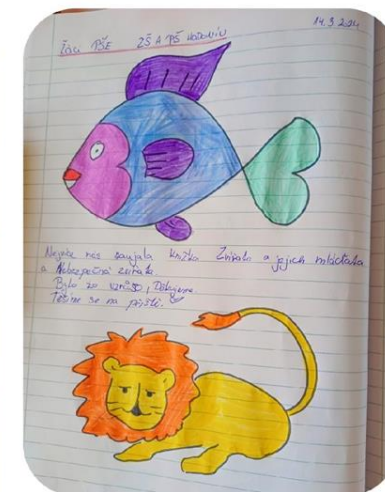 14.3.2024
Žáci PŠE ZŠ A PŠ HODONÍN
Nejvíce nás zaujala knížka Zvířata a jejich mláďata
a Nebezpečná zvířata.
Bylo to, Děkujeme.
Těšíme se na příště.